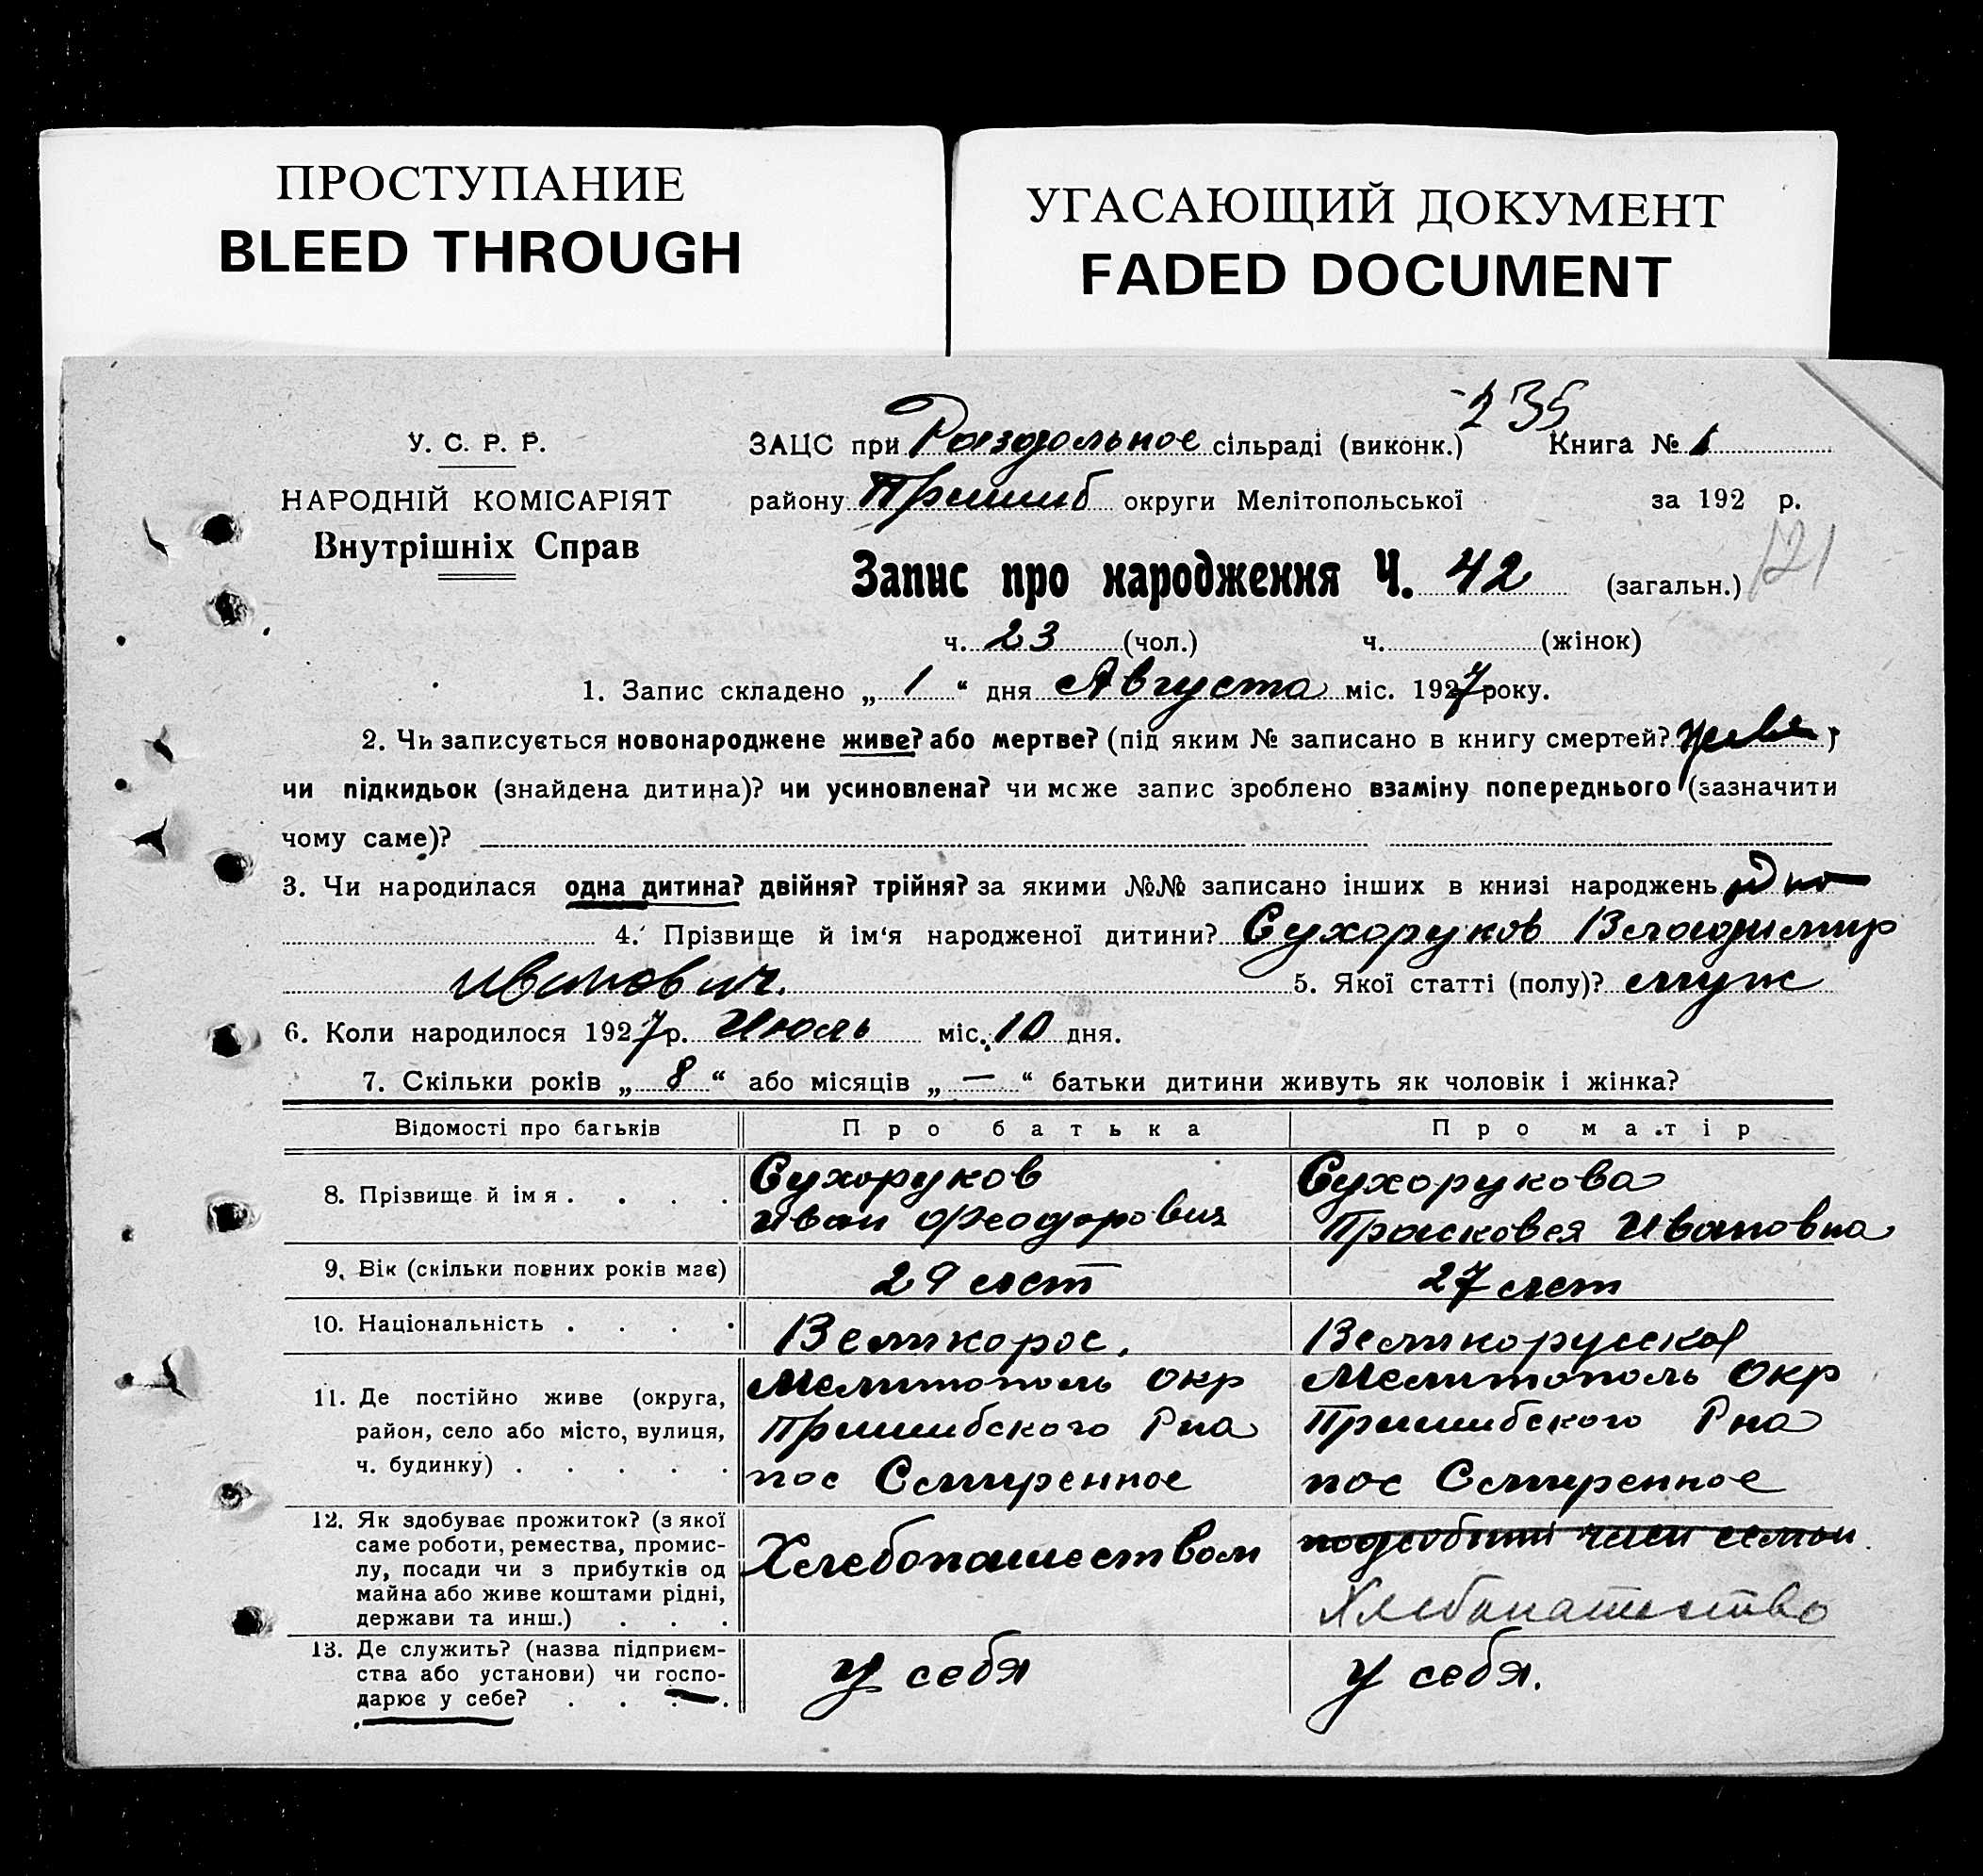 ПРОСТУПАНИЕ
BLEED THROUGH
УГАСАЮЩИЙ ДОКУМЕНТ
FADED DOCUMENT
235
У. С. Р. Р.
НАРОДНІЙ КОМІСАРІЯТ
Внутрішніх Справ
ЗАЦС при Раздольное сільраді (виконк.) Книга № 1
району Пришиб округи Мелітопольської за 192 р.
121
Запис про народження Ч. 42 (загальн.)
ч. 23 (чол.) ч. (жінок)
1. Запис складено „ 1 “ дня Августа міс. 1927 року.
2. Чи записується новонароджене живе? або мертве? (під яким № записано в книгу смертей?
чи підкидьок (знайдена дитина)? чи усиновлена? чи може запис зроблено взаміну попереднього (зазначити
чому саме)?
3. Чи народилася одна дитина? двійня? трійня? за якими №№ записано інших в книзі народжень одно
4. Прізвище й ім‘я народженої дитини? Сухоруков Владимир
Иванович. 5. Якої статті (полу)? муж
6. Коли народилося 1927 р. Июль міс. 10 дня.
7. Скільки років „ 8 “ або місяців „ — “ батьки дитини живуть як чоловік і жінка?
Відомості про батьків Про батька Про матір
8. Прізвище й імя . . . . Сухоруков Сухорукова
Иван Феодорович Прасковея Ивановна
9. Вік (скільки повних років має) 29 лет 27 лет
10. Національність . . . . Великорос. Великорусская
11. Де постійно живе (округа, Мелитополь Окр Мелитополь Окр
район, село або місто, вулиця, Пришибского Рна Пришибского Рна
ч. будинку) . . . . . пос Смиренное пос Смиренное
12. Як здобуває прожиток? (з якої
саме роботи, ремества, промис-
лу, посади чи з прибутків од
майна або живе коштами рідні,
держави та инш.) . . . Хлебопашеством Хлебопашество
13. Де служить? (назва підприєм-
ства або установи) чи госпо-
дарює у себе? . . . . у себя у себя.